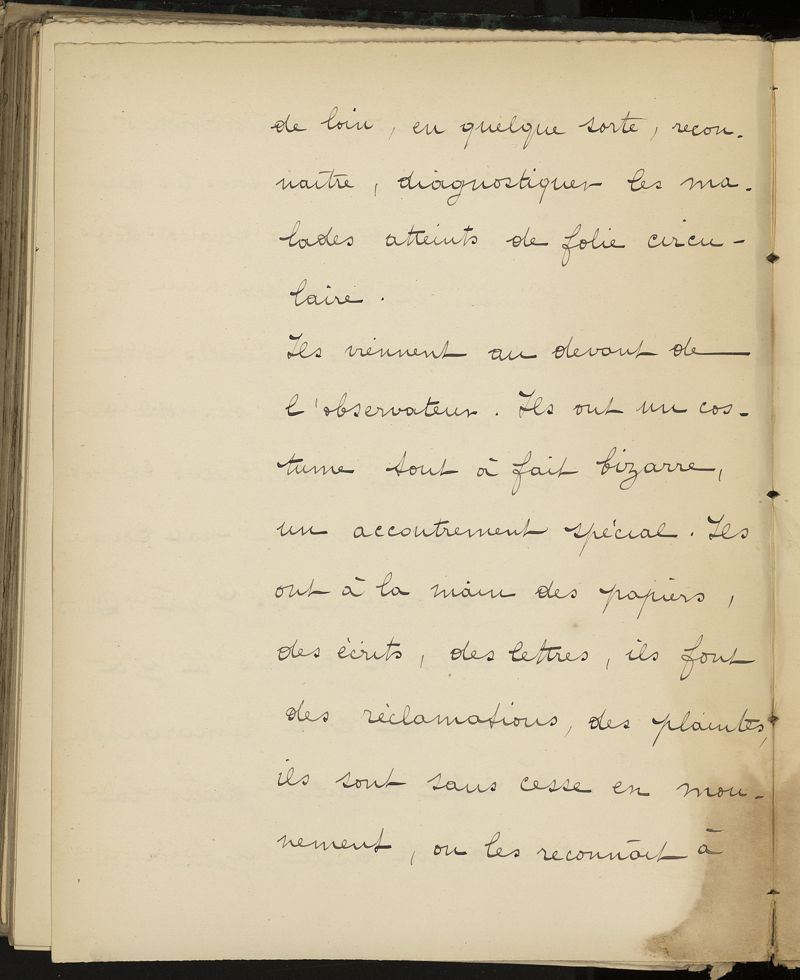 de loin, en quelque sorte, recon-
naître, diagnostiquer les ma-
lades atteints de folie circu-
laire.
Ils viennent au devant de
l'observateur. Ils ont un cos-
tume tout à fait bizarre,
un accoutrement spécial. Ils
ont à la main des papiers,
des écrits, des lettres, ils font
des réclamations, des plaintes,
ils sont sans cesse en mou-
vement, on les reconnait à